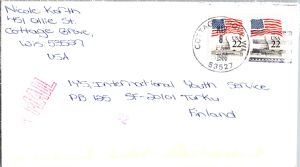 Nicole Korth
451 Olie St.
Cottage Grove,
Wis 53527
USA
COTTAGE
53527
USA
22
USA
22
IYS, International Youth Service
PB 125 SF-20101 Turku
Finland